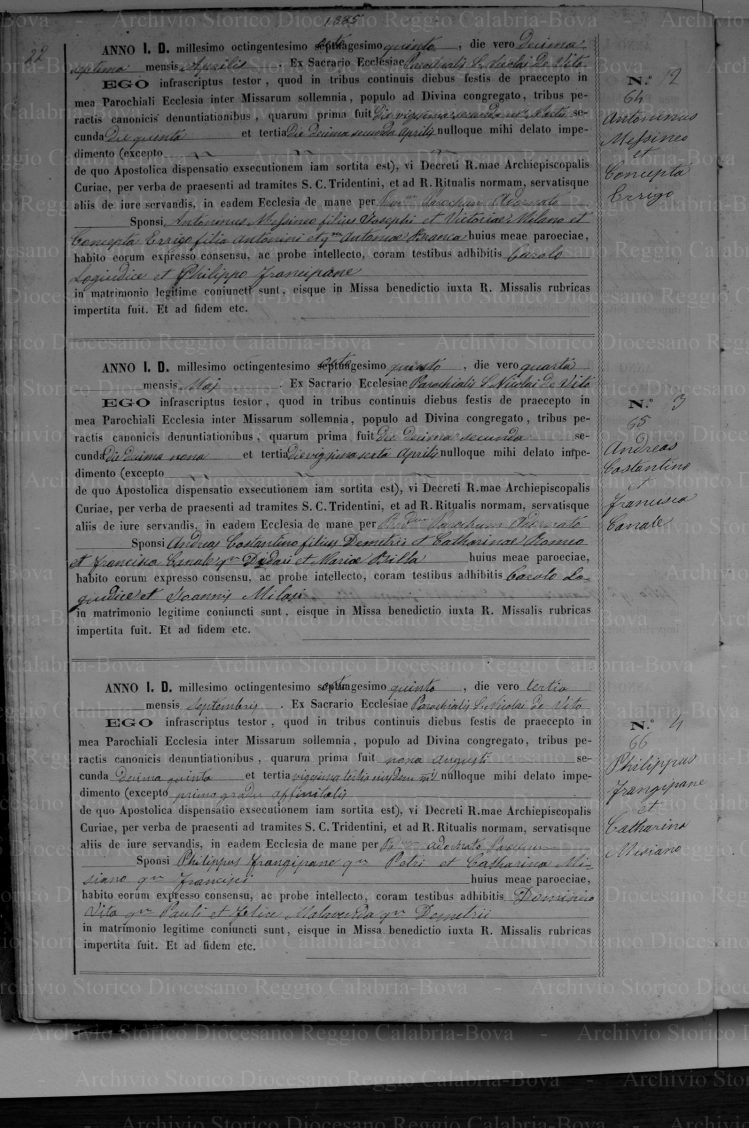 1885
22
ANNO I. D. millesimo octingentesimo septuagesimo quinto, die vero Decima
septima mensis Aprilis. Ex Sacrario Ecclesiae Parochialis S. Nicolai De Vito
EGO infrascriptus testor, quod in tribus continuis diebus festis de praecepto in
mea Parochiali Ecclesia inter Missarum sollemnia, populo ad Divina congregato, tribus pe-
ractis canonicis denuntiationibus, quarum prima fuit Die vigesima secunda se-
cunda Die quinta et tertia Die decima secunda Aprilis nulloque mihi delato impe-
dimento (excepto
de quo Apostolica dispensatio exsecutionem iam sortita est), vi Decreti R.mae Archiepiscopalis
Curiae, per verba de praesenti ad tramites S. C. Tridentini, et ad R. Ritualis normam, servatisque
aliis de iure servandis, in eadem Ecclesia de mane per Parochum
Sponsi Antoninus Messineo filius Josephi et Victoriae Meleno et
Concepta Errigo filia Antonini et qm Antoniae huius meae paroeciae,
habito eorum expresso consensu, ac probe intellecto, coram testibus adhibitis Carolo
Logiudice et Philippo Francipane
in matrimonio legitime coniuncti sunt, eisque in Missa benedictio iuxta R. Missalis rubricas
impertita fuit. Et ad fidem etc.
N.º 2
64
Antoninus
Messineo
et
Concepta
Errigo
ANNO I. D. millesimo octingentesimo septuagesimo quinto, die vero quarta
mensis Maj. Ex Sacrario Ecclesiae Parochialis S. Nicolai De Vito
EGO infrascriptus testor, quod in tribus continuis diebus festis de praecepto in
mea Parochiali Ecclesia inter Missarum sollemnia, populo ad Divina congregato, tribus pe-
ractis canonicis denuntiationibus, quarum prima fuit Die Decima secunda se-
cunda Die decima nona et tertia Die vigesima sexta Aprilis nulloque mihi delato impe-
dimento (excepto
de quo Apostolica dispensatio exsecutionem iam sortita est), vi Decreti R.mae Archiepiscopalis
Curiae, per verba de praesenti ad tramites S. C. Tridentini, et ad R. Ritualis normam, servatisque
aliis de iure servandis, in eadem Ecclesia de mane per Parochum
Sponsi Andreas Costantino filius Demetrii et Catharinae Romeo
et Francisca Canale qm et Mariae Billa huius meae paroeciae,
habito eorum expresso consensu, ac probe intellecto, coram testibus adhibitis Carolo Lo-
giudice et Joannis Milasi
in matrimonio legitime coniuncti sunt, eisque in Missa benedictio iuxta R. Missalis rubricas
impertita fuit. Et ad fidem etc.
N.º 3
65
Andreas
Costantino
et
Francisca
Canale
ANNO I. D. millesimo octingentesimo septuagesimo quinto, die vero tertia
mensis Septembris. Ex Sacrario Ecclesiae Parochialis S. Nicolai de Vito
EGO infrascriptus testor, quod in tribus continuis diebus festis de praecepto in
mea Parochiali Ecclesia inter Missarum sollemnia, populo ad Divina congregato, tribus pe-
ractis canonicis denuntiationibus, quarum prima fuit nona Augusti se-
cunda Decima quinta et tertia vigesima tertia eiusdem nulloque mihi delato impe-
dimento (excepto primo gradu affinitatis
de quo Apostolica dispensatio exsecutionem iam sortita est), vi Decreti R.mae Archiepiscopalis
Curiae, per verba de praesenti ad tramites S. C. Tridentini, et ad R. Ritualis normam, servatisque
aliis de iure servandis, in eadem Ecclesia de mane per
Sponsi Philippus Frangipane qm Petri et Catharina Mi-
siano qm Francisci huius meae paroeciae,
habito eorum expresso consensu, ac probe intellecto, coram testibus adhibitis Dominico
Vita qm Pauli et Felice Malacrida qm Demetrii
in matrimonio legitime coniuncti sunt, eisque in Missa benedictio iuxta R. Missalis rubricas
impertita fuit. Et ad fidem etc.
N.º 4
66
Philippus
Frangipane
et
Catharina
Misiano
Archivio Storico Diocesano Reggio Calabria-Bova